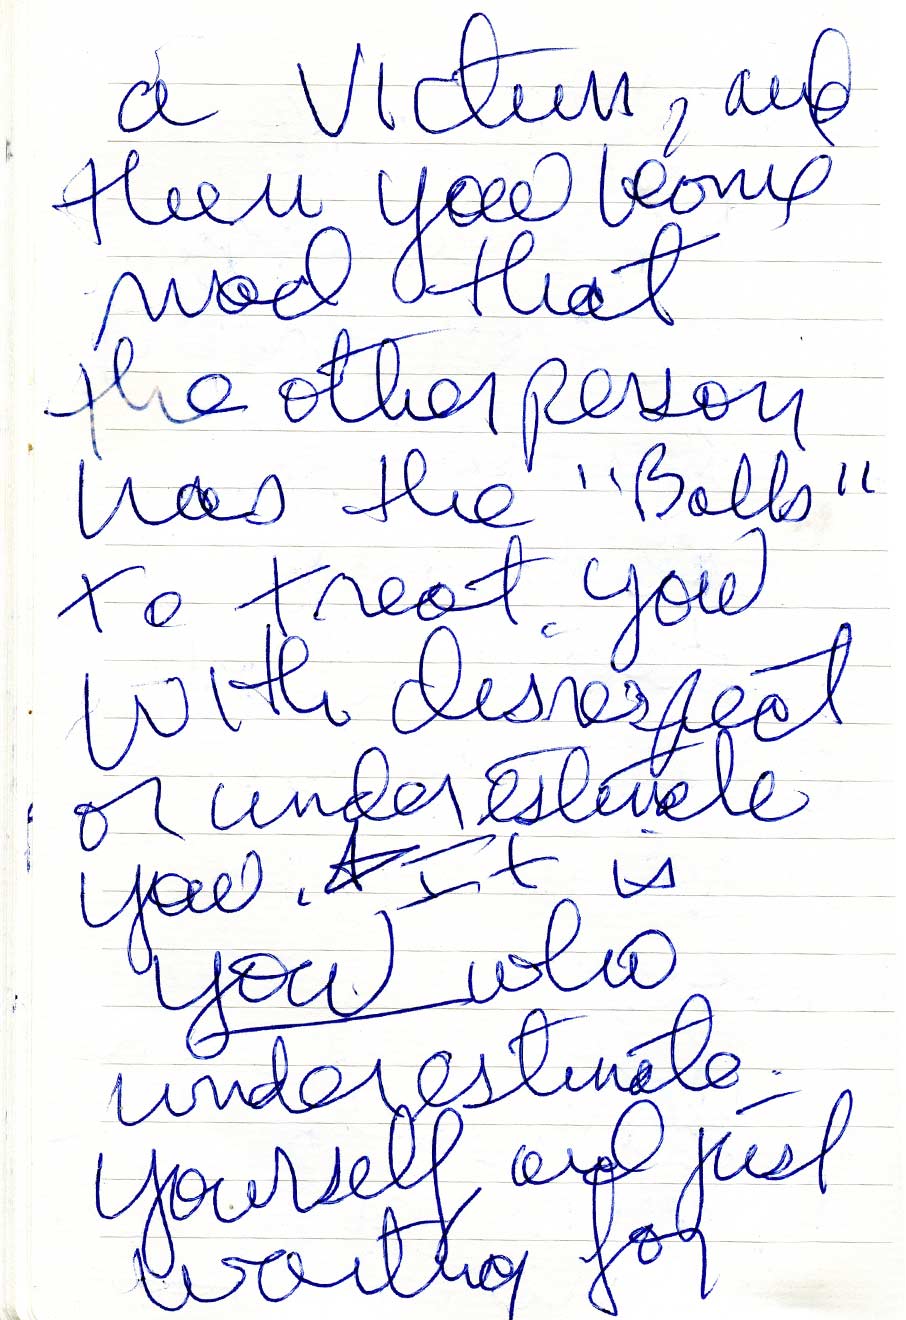 a Victim, and
then you become
mad that
the other person
has the "Balls"
to treat you
with disrespect
or underestimate
you. It is
you who
underestimate
yourself and just
waiting for